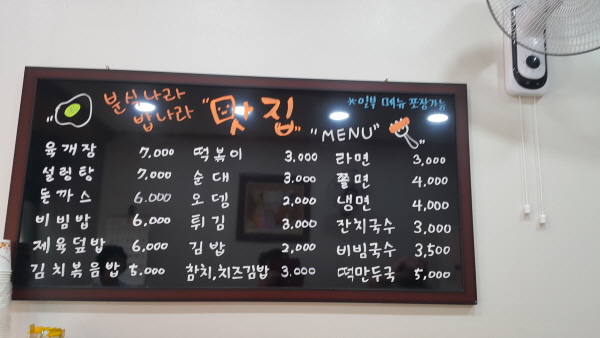 분식나라
밥나라
"맛집"
*일부 메뉴 포장가능
"MENU"
육개장 7,000
설렁탕 7,000
돈까스 6.000
비빔밥 6,000
제육덮밥 6,000
김치볶음밥 5.000
떡볶이 3,000
순대 3,000
오뎅 2,000
튀김 3,000
김밥 2,000
참치,치즈김밥 3,000
라면 3,000
쫄면 4,000
냉면 4,000
잔치국수 3,000
비빔국수 3,500
떡만두국 5,000